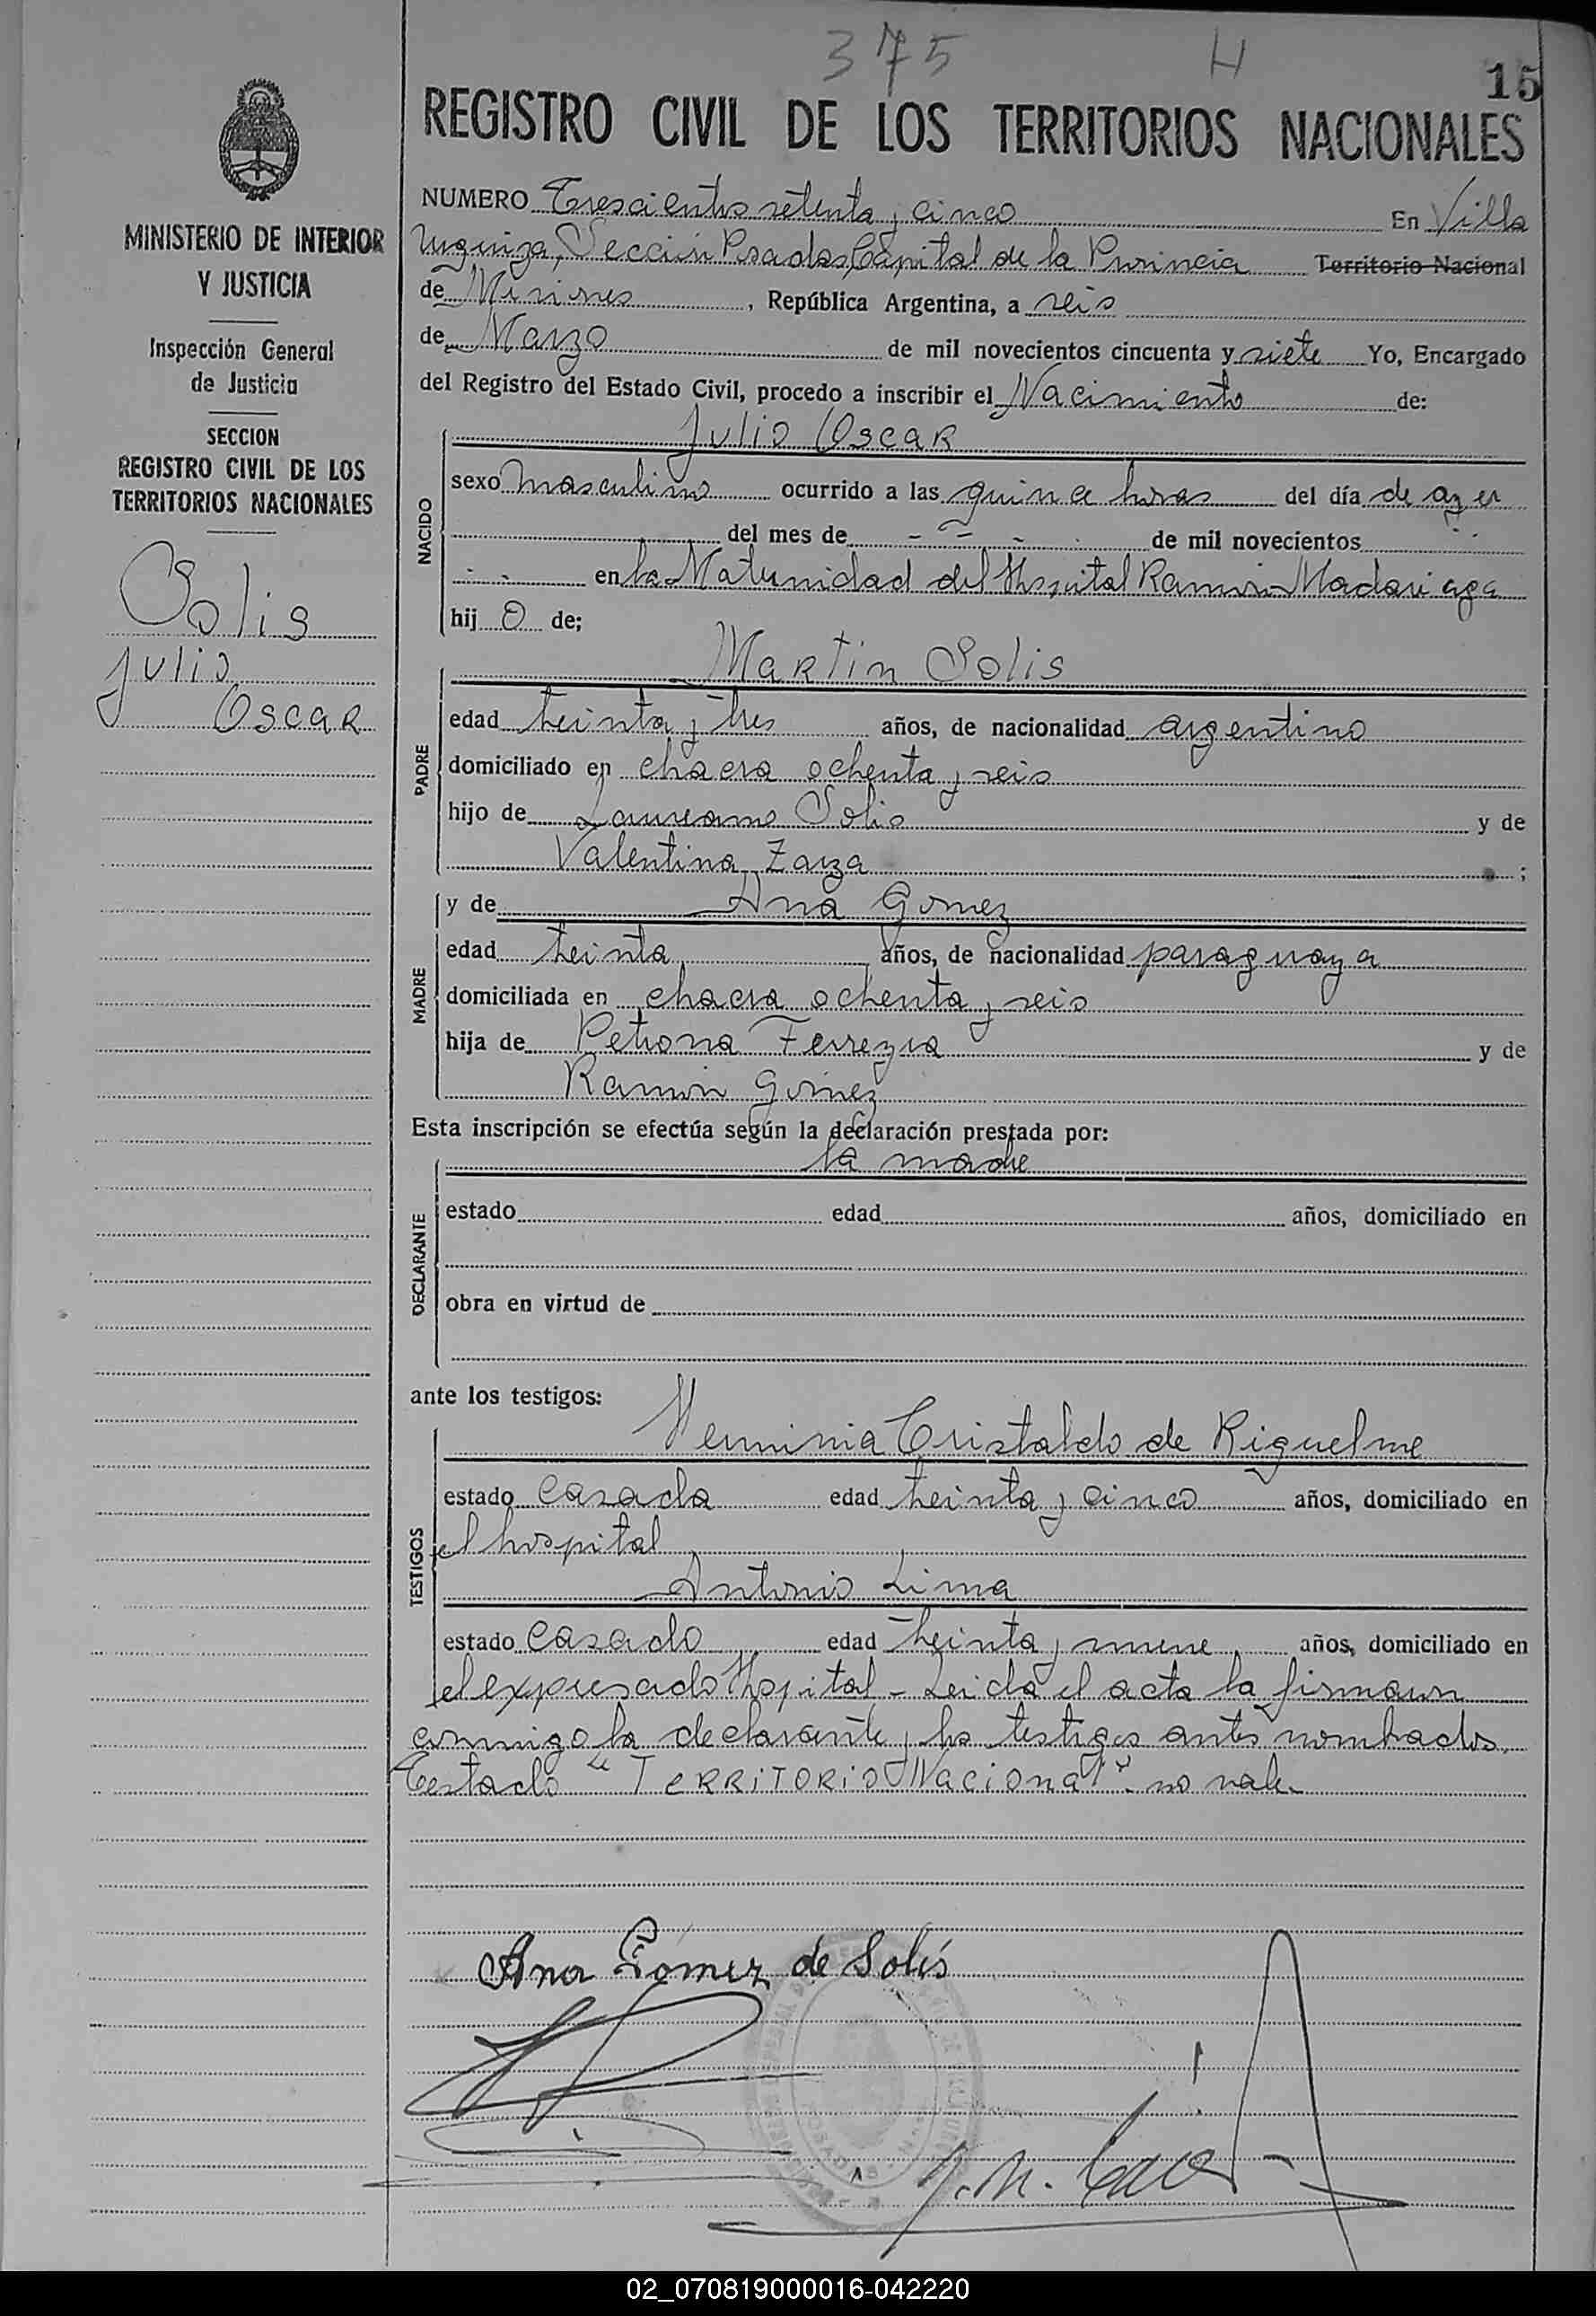 375 H
15
REGISTRO CIVIL DE LOS TERRITORIOS NACIONALES
MINISTERIO DE INTERIOR
Y JUSTICIA
Inspección General
de Justicia
SECCION
REGISTRO CIVIL DE LOS
TERRITORIOS NACIONALES
Solis
Julio
Oscar
NUMERO Trescientos setenta y cinco En Villa
Urquiza, Sección Posadas, Capital de la Provincia Territorio Nacional
de Misiones, República Argentina, a seis
de Marzo de mil novecientos cincuenta y siete Yo, Encargado
del Registro del Estado Civil, procedo a inscribir el Nacimiento de:
NACIDO
Julio Oscar
sexo masculino ocurrido a las quince horas del día de ayer
del mes de - - - de mil novecientos
en la Maternidad del Hospital Ramón Madariaga
hij o de;
PADRE
Martin Solis
edad treinta y tres años, de nacionalidad argentino
domiciliado en chacra ochenta y seis
hijo de Laureano Solis y de
Valentina Zarza ;
MADRE
y de Ana Gomez
edad treinta años, de nacionalidad paraguaya
domiciliada en chacra ochenta y seis
hija de Petrona Ferreyra y de
Ramón Gómez
Esta inscripción se efectúa según la declaración prestada por:
DECLARANTE
la madre
estado edad años, domiciliado en
obra en virtud de
ante los testigos:
TESTIGOS
Herminia Cristaldo de Riquelme
estado casada edad treinta y cinco años, domiciliado en
el hospital
Antonio Lima
estado casado edad treinta y nueve años, domiciliado en
el expresado Hospital - Leida el acta la firmaron
conmigo la declarante y los testigos antes nombrados.
Testado "Territorio Nacional": no vale.
Ana Gómez de Solís
02_070819000016-042220